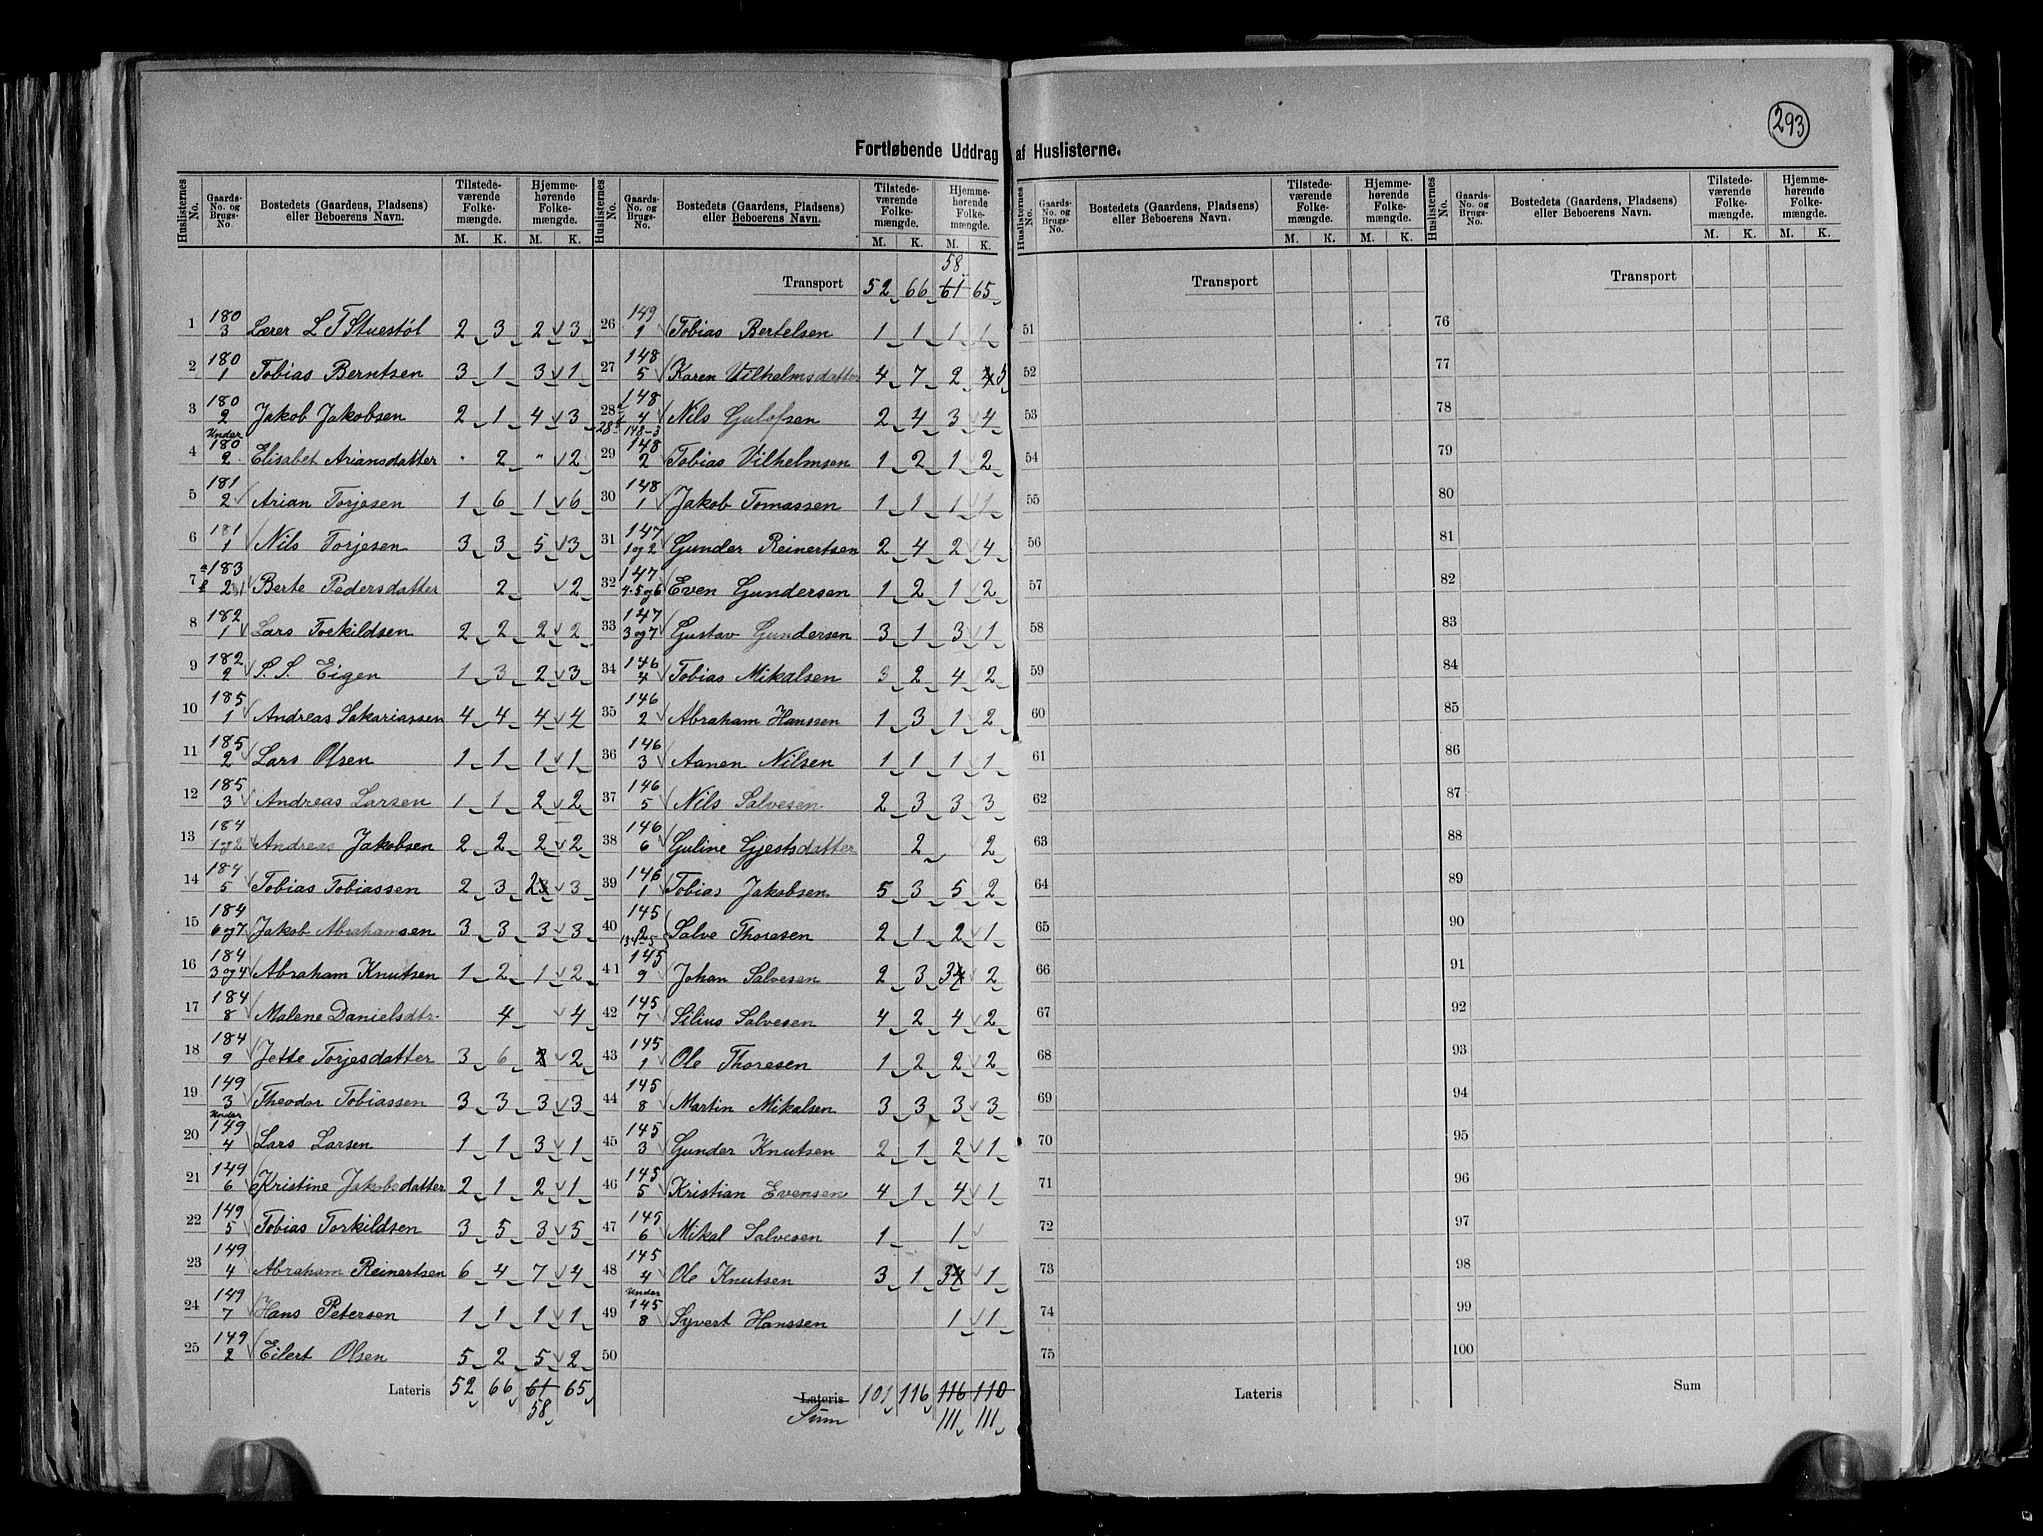 293
Fortløbende Uddrag af Huslisterne.
Huslisternes No. Gaards-No. og Brugs-No. Bostedets (Gaardens, Pladsens) eller Beboerens Navn. Tilstedeværende Folkemængde. M. K. Hjemmehørende Folkemængde. M. K.
1 180 3 Lærer L T Stuestøl 2 3 2 3
2 180 1 Tobias Berntsen 3 1 3 1
3 180 2 Jakob Jakobsen 2 1 4 3
4 Under 180 2 Elisabet Ariansdatter " 2 " 2
5 181 2 Arian Torjesen 1 6 1 6
6 181 1 Nils Torjesen 3 3 5 3
7 183 2 Berte Pedersdatter 2 2
8 182 1 Lars Torkildsen 2 2 2 2
9 182 2 S. S. Eigen 1 3 2 3
10 185 1 Andreas Sakariassen 4 4 4 4
11 185 2 Lars Olsen 1 1 1 1
12 185 3 Andreas Larsen 1 1 2 2
13 184 1 og 2 Andreas Jakobsen 2 2 2 2
14 184 5 Tobias Tobiassen 2 3 2 3
15 184 6 og 7 Jakob Abrahamsen 3 3 3 3
16 184 3 og 4 Abraham Knutsen 1 2 1 2
17 184 8 Malene Danielsdtr. 4 4
18 184 9 Jette Torjesdatter 3 6 2
19 149 3 Theodor Tobiassen 3 3 3 3
20 Under 149 4 Lars Larsen 1 1 3 1
21 149 6 Kristine Jakobsdatter 2 1 2 1
22 149 5 Tobias Torkildsen 3 5 3 5
23 149 4 Abraham Reinertsen 6 4 7 4
24 149 7 Hans Petersen 1 1 1 1
25 149 2 Eilert Olsen 5 2 5 2
Lateris 52 66 61 65
58
Huslisternes No. Gaards-No. og Brugs-No. Bostedets (Gaardens, Pladsens) eller Beboerens Navn. Tilstedeværende Folkemængde. M. K. Hjemmehørende Folkemængde. M. K.
58
Transport 52 66 61 65
26 149 1 Tobias Bertelsen 1 1 1 1
27 148 5 Karen Vilhelmsdatter 4 7 2 5
28 148 4 Nils Gulofsen 2 4 3 4
28 148-3
29 148 2 Tobias Vilhelmsen 1 2 1 2
30 148 1 Jakob Tomassen 1 1 1 1
31 147 1 og 2 Gunder Reinertsen 2 4 2 4
32 147 4.5 og 6 Even Gundersen 1 2 1 2
33 147 3 og 7 Gustav Gundersen 3 1 3 1
34 146 4 Tobias Mikalsen 3 2 4 2
35 146 2 Abraham Hanssen 1 3 1 2
36 146 3 Aanen Nilsen 1 1 1 1
37 146 5 Nils Salvesen 2 3 3 3
38 146 6 Guline Gjestsdatter 2 2
39 146 1 Tobias Jakobsen 5 3 5 2
40 145 2 Salve Thoresen 2 1 2 1
41 145 9 Johan Salvesen 2 3 3 2
42 145 7 Silius Salvesen 4 2 4 2
43 145 1 Ole Thoresen 1 2 2 2
44 145 8 Martin Mikalsen 3 3 3 3
45 145 3 Gunder Knutsen 2 1 2 1
46 145 5 Kristian Evensen 4 1 4 1
47 145 6 Mikal Salvesen 1 1
48 145 4 Ole Knutsen 3 1 3 1
49 Under 145 8 Syvert Hanssen 1 1
50
Lateris 101 116 116 110
Sum 111 111
Huslisternes No. Gaards-No. og Brugs-No. Bostedets (Gaardens, Pladsens) eller Beboerens Navn. Tilstedeværende Folkemængde. M. K. Hjemmehørende Folkemængde. M. K.
Transport
51
52
53
54
55
56
57
58
59
60
61
62
63
64
65
66
67
68
69
70
71
72
73
74
75
Lateris
Huslisternes No. Gaards-No. og Brugs-No. Bostedets (Gaardens, Pladsens) eller Beboerens Navn. Tilstedeværende Folkemængde. M. K. Hjemmehørende Folkemængde. M. K.
Transport
76
77
78
79
80
81
82
83
84
85
86
87
88
89
90
91
92
93
94
95
96
97
98
99
100
Sum